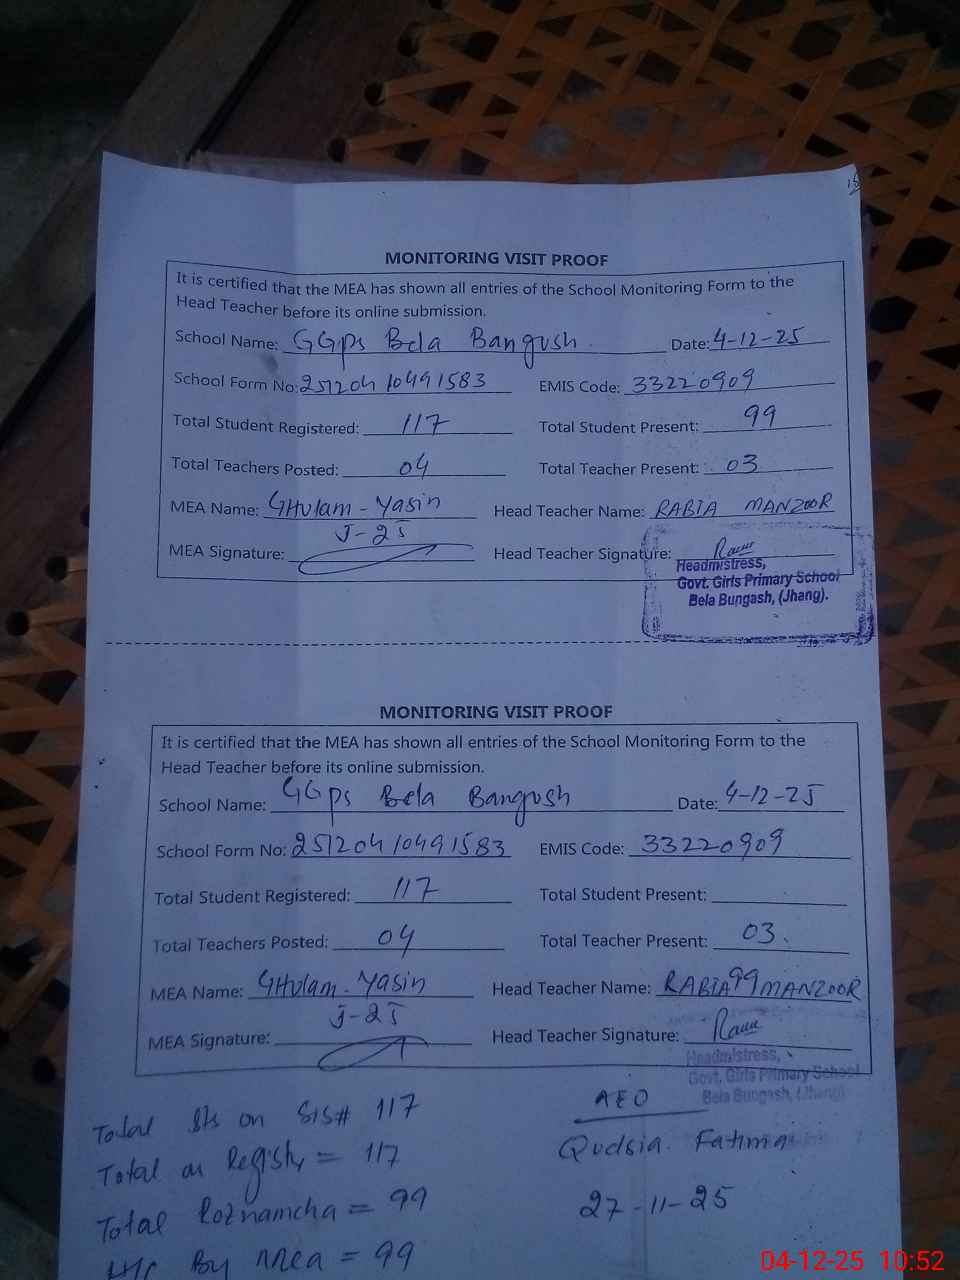 MONITORING VISIT PROOF
It is certified that the MEA has shown all entries of the School Monitoring Form to the
Head Teacher before its online submission.
School Name: GGps Bela Bangush Date: 4-12-25
School Form No: 25120410491583 EMIS Code: 33220909
Total Student Registered: 117 Total Student Present: 99
Total Teachers Posted: 04 Total Teacher Present: 03
MEA Name: GHulam-Yasin Head Teacher Name: RABIA MANZOOR
J-25
MEA Signature: Head Teacher Signature:
Headmistress,
Govt. Girls Primary School
Bela Bungash, (Jhang).
MONITORING VISIT PROOF
It is certified that the MEA has shown all entries of the School Monitoring Form to the
Head Teacher before its online submission.
School Name: GGps Bela Bangush Date: 4-12-25
School Form No: 25120410491583 EMIS Code: 33220909
Total Student Registered: 117 Total Student Present:
Total Teachers Posted: 04 Total Teacher Present: 03
MEA Name: GHulam-Yasin Head Teacher Name: RABIA 99 MANZOOR
J-25
MEA Signature: Head Teacher Signature:
Headmistress,
Govt. Girls Primary School
Bela Bungash, (Jhang)
Total Sts on SIS# 117
AEO
Total on Registr = 117
Qudsia Fatima
Total Roznamcha = 99
27-11-25
H/C By MEA = 99
04-12-25 10:52